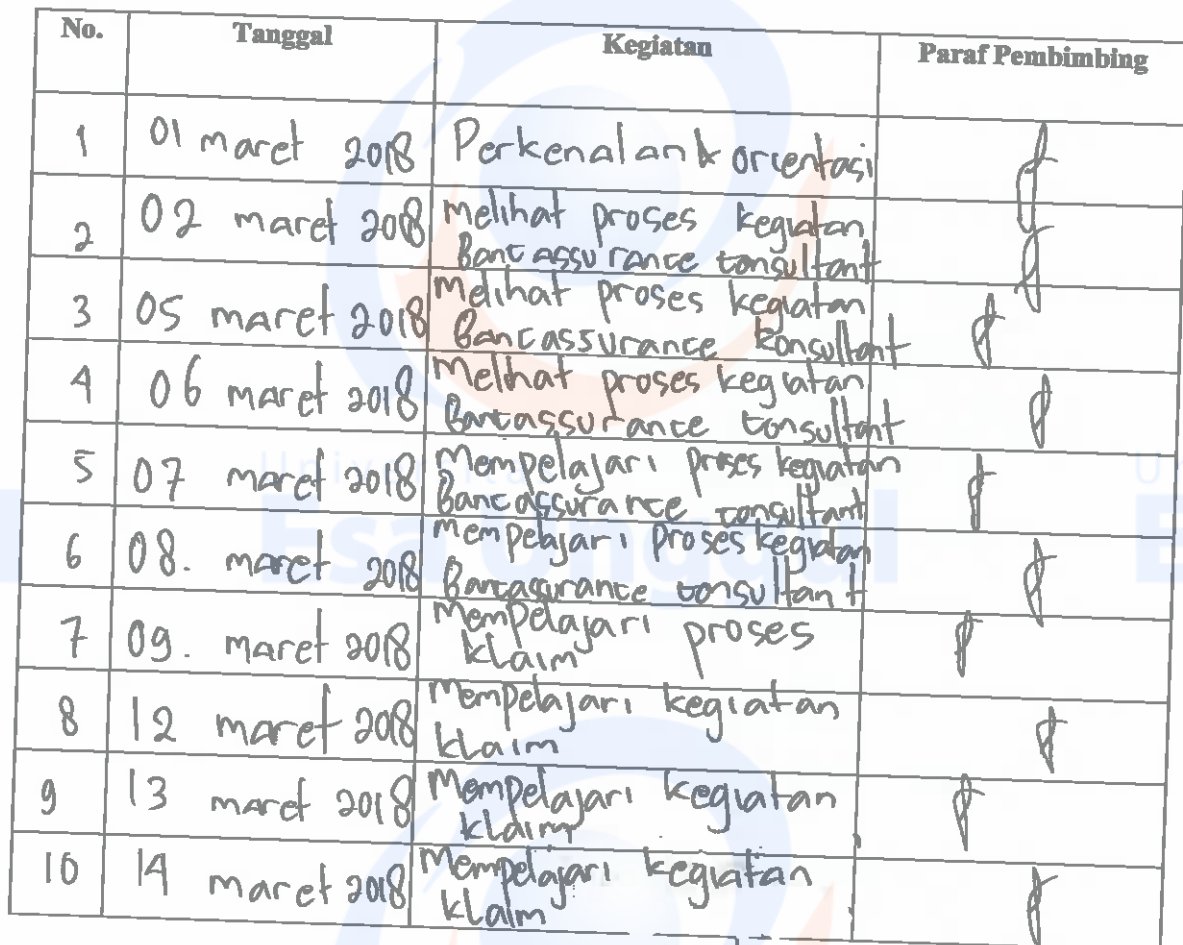 No. Tanggal Kegiatan Paraf Pembimbing
1 01 maret 2018 Perkenalan & orientasi
2 02 maret 2018 Melihat proses kegiatan
Bancassurance consultant
3 05 maret 2018 Melihat proses kegiatan
Bancassurance konsultant
4 06 maret 2018 Melihat proses kegiatan
Bancassurance consultant
5 07 maret 2018 Mempelajari proses kegiatan
Bancassurance consultant
6 08. maret 2018 Mempelajari proses kegiatan
Bancassurance consultant
7 09. maret 2018 Mempelajari proses
klaim
8 12 maret 2018 Mempelajari kegiatan
klaim
9 13 maret 2018 Mempelajari kegiatan
klaim
10 14 maret 2018 Mempelajari kegiatan
klaim
Universitas
Esa Unggal